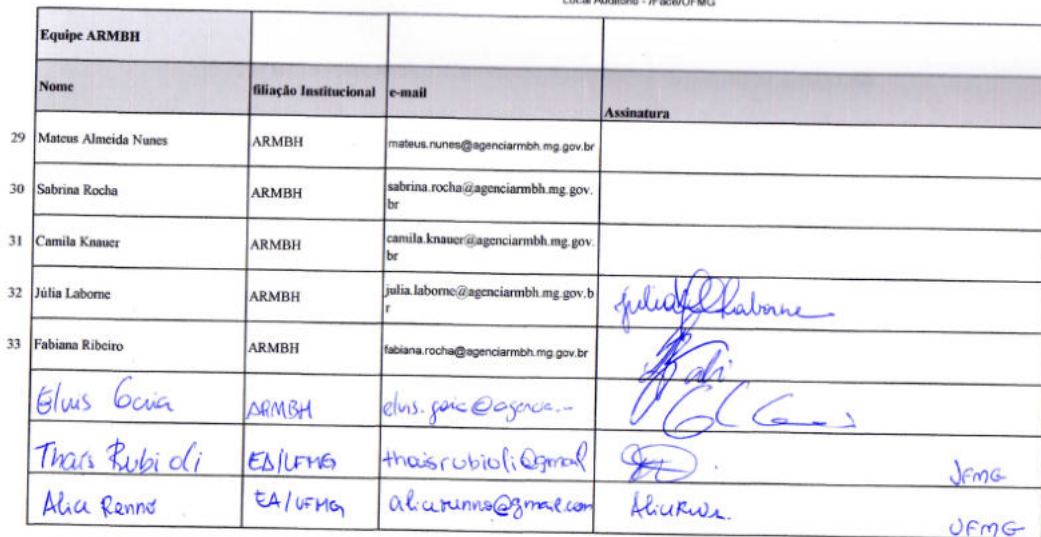 Local Auditório - /Face/UFMG
Equipe ARMBH
Nome filiação Institucional e-mail Assinatura
29 Mateus Almeida Nunes ARMBH mateus.nunes@agenciarmbh.mg.gov.br
30 Sabrina Rocha ARMBH sabrina.rocha@agenciarmbh.mg.gov.
br
31 Camila Knauer ARMBH camila.knauer@agenciarmbh.mg.gov.
br
32 Júlia Laborne ARMBH julia.laborne@agenciarmbh.mg.gov.b
r
33 Fabiana Ribeiro ARMBH fabiana.rocha@agenciarmbh.mg.gov.br
Elvis Gaia ARMBH elvis.gaia@agencia...
Thais Rubioli EA/UFMG thaisrubioli@gmail UFMG
Alice Rennó EA/UFMG alicerenno@gmail.com UFMG